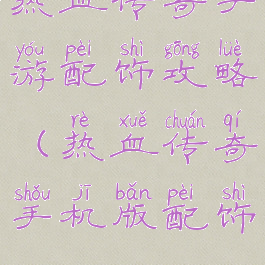 热血传奇手
yóu pèi shì gōng lüè
游配饰攻略
rè xuě chuán qí
（热血传奇
shǒu jī bǎn pèi shì
手机版配饰